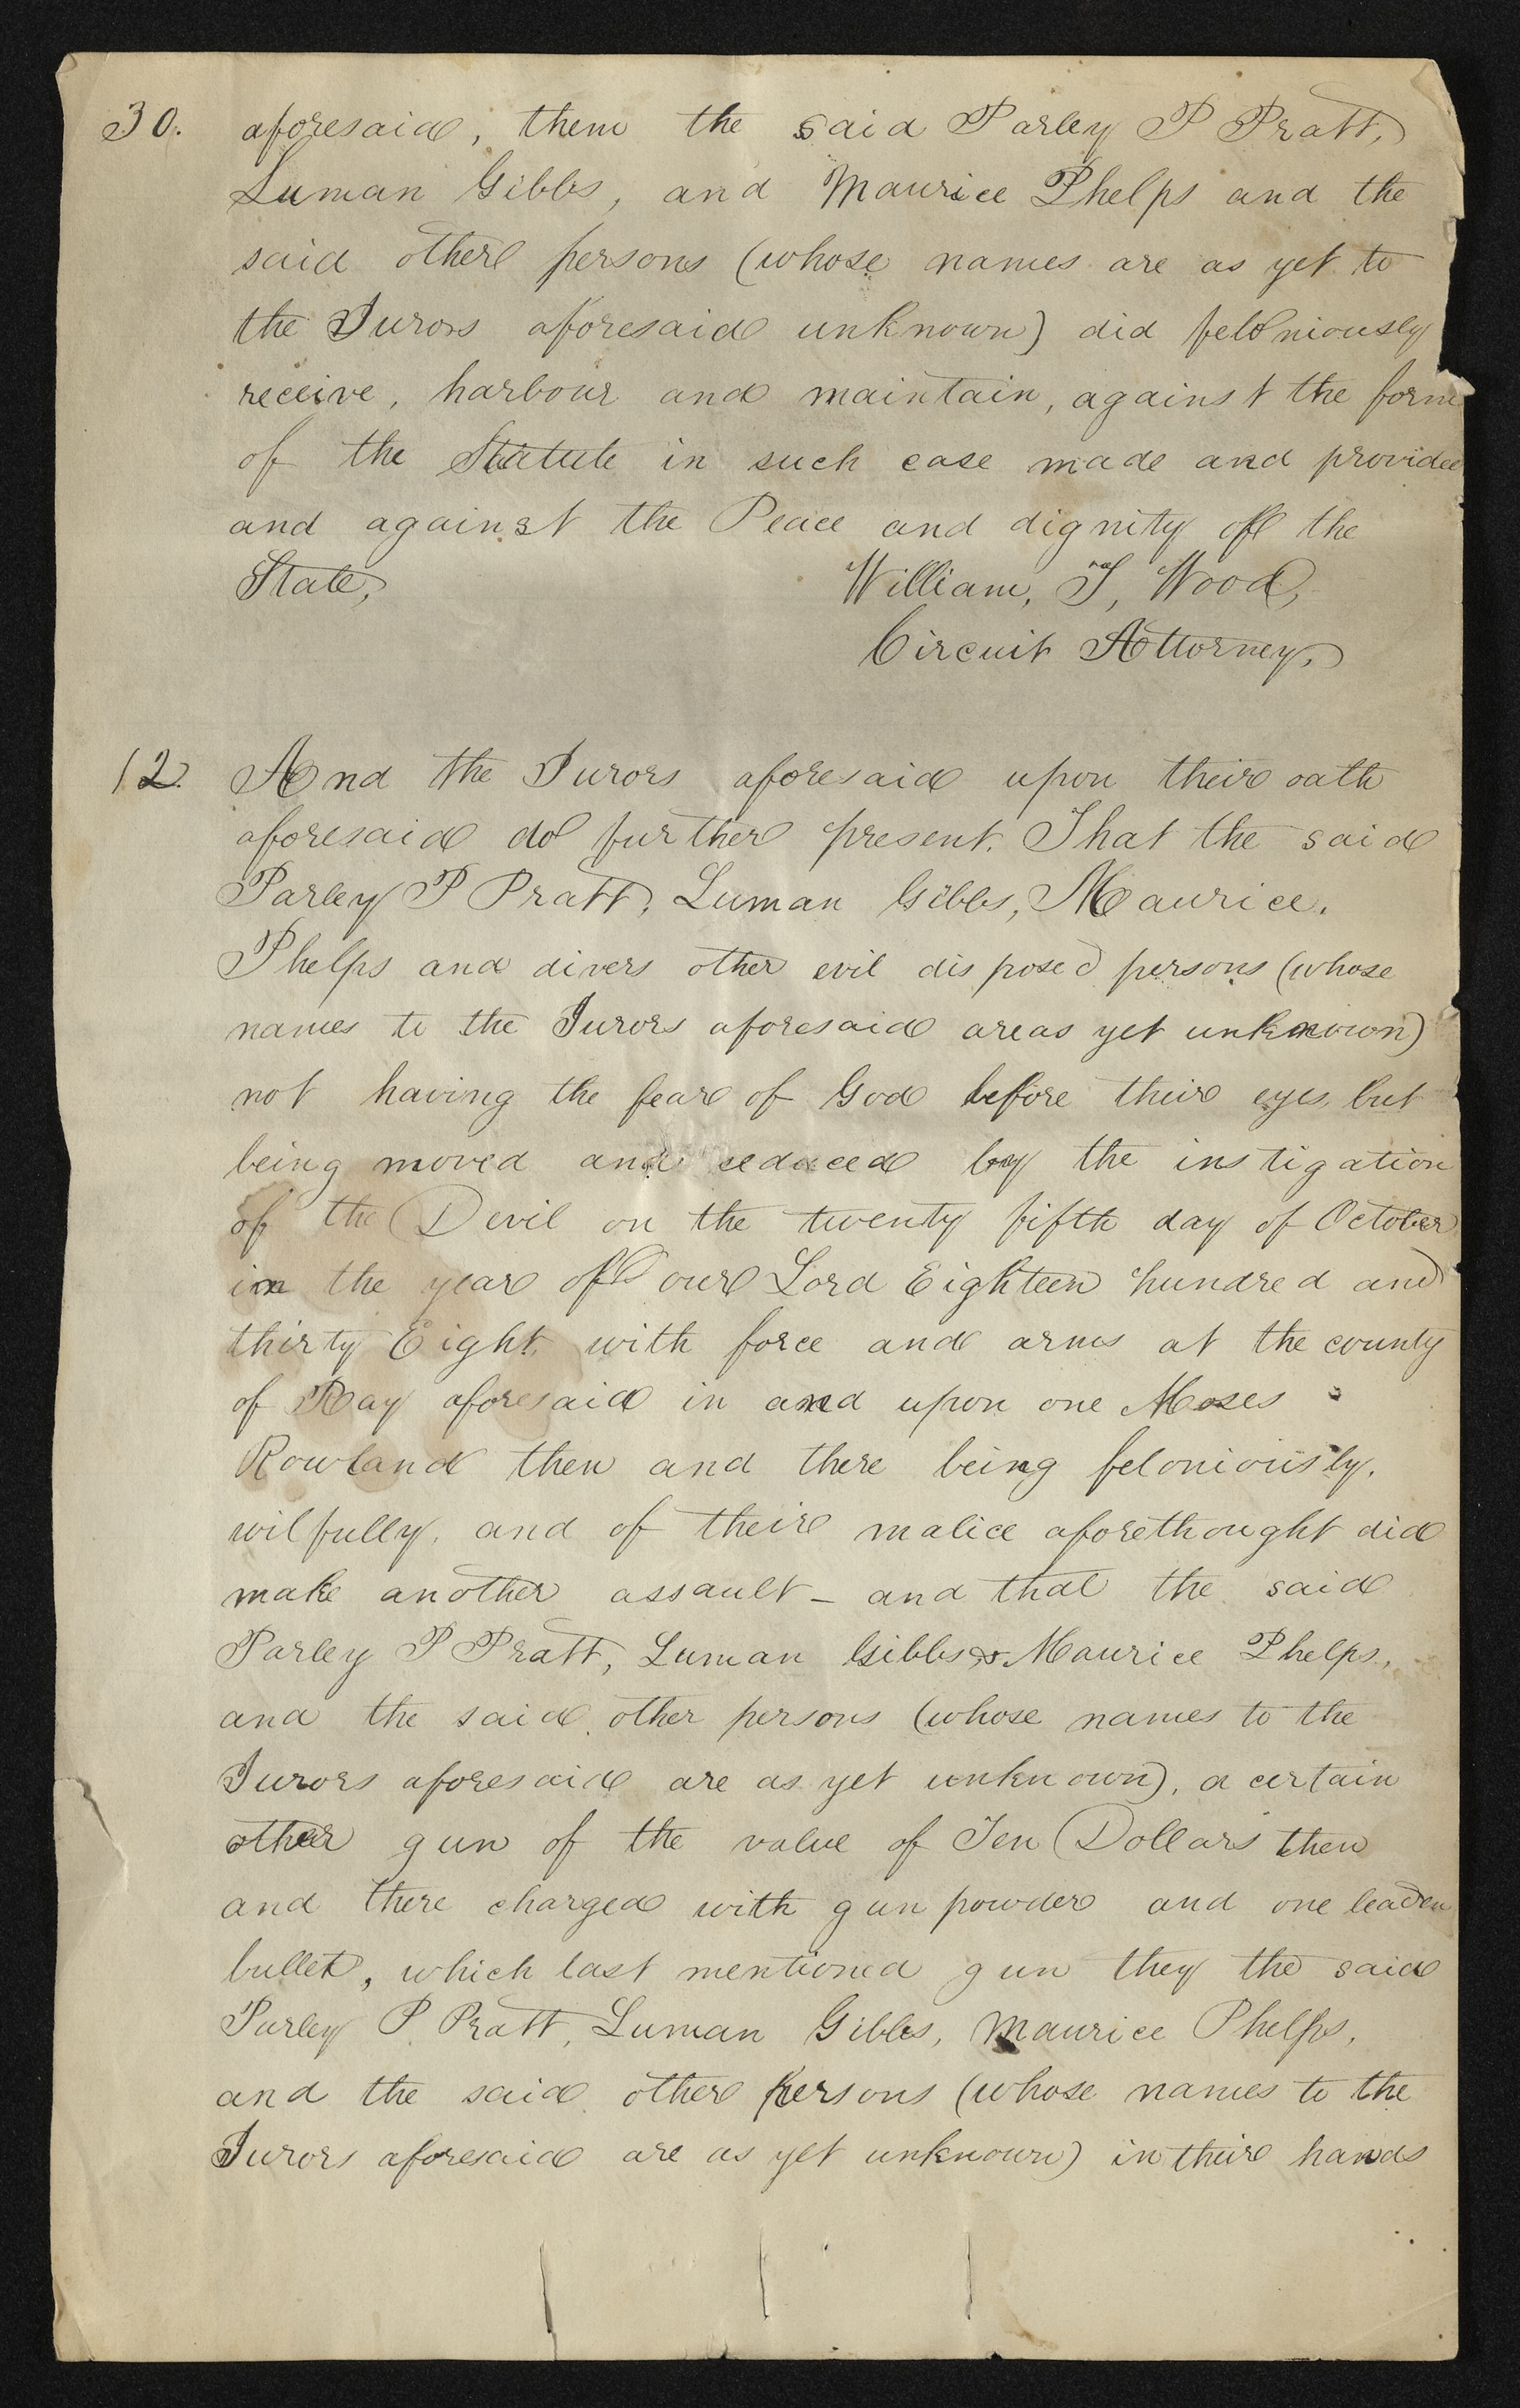 30. aforesaid, them the said Parley P Pratt,
Luman Gibbs, and Maurice Phelps and the
said other persons (whose names are as yet to
the Jurors aforesaid unknown) did feloniously
receive, harbour and maintain, against the form
of the Statute in such case made and provided
and against the Peace and dignity of the
State, William, T, Wood,
Circuit Attorney,
12. And the Jurors aforesaid upon their oath
aforesaid do further present. That the said
Parley P Pratt, Luman Gibbs, Maurice.
Phelps and divers other evil disposed persons (whose
names to the Jurors aforesaid are as yet unknown)
not having the fear of God before their eyes, but
being moved and seduced by the instigation
of the Devil on the twenty fifth day of October
in the year of our Lord Eighteen hundred and
thirty Eight, with force and arms at the county
of Ray aforesaid in and upon one Moses
Rowland then and there being feloniously,
wilfully, and of their malice aforethought did
make another assault – and that the said
Parley P Pratt, Luman Gibbs & Maurice Phelps,
and the said other persons (whose names to the
Jurors aforesaid are as yet unknown), a certain
other gun of the value of Ten Dollars then
and there charged with gun powder and one leaden
bullet, which last mentioned gun they the said
Parley P. Pratt, Luman Gibbs, Maurice Phelps,
and the said other persons (whose names to the
Jurors aforesaid are as yet unknown) in their hands